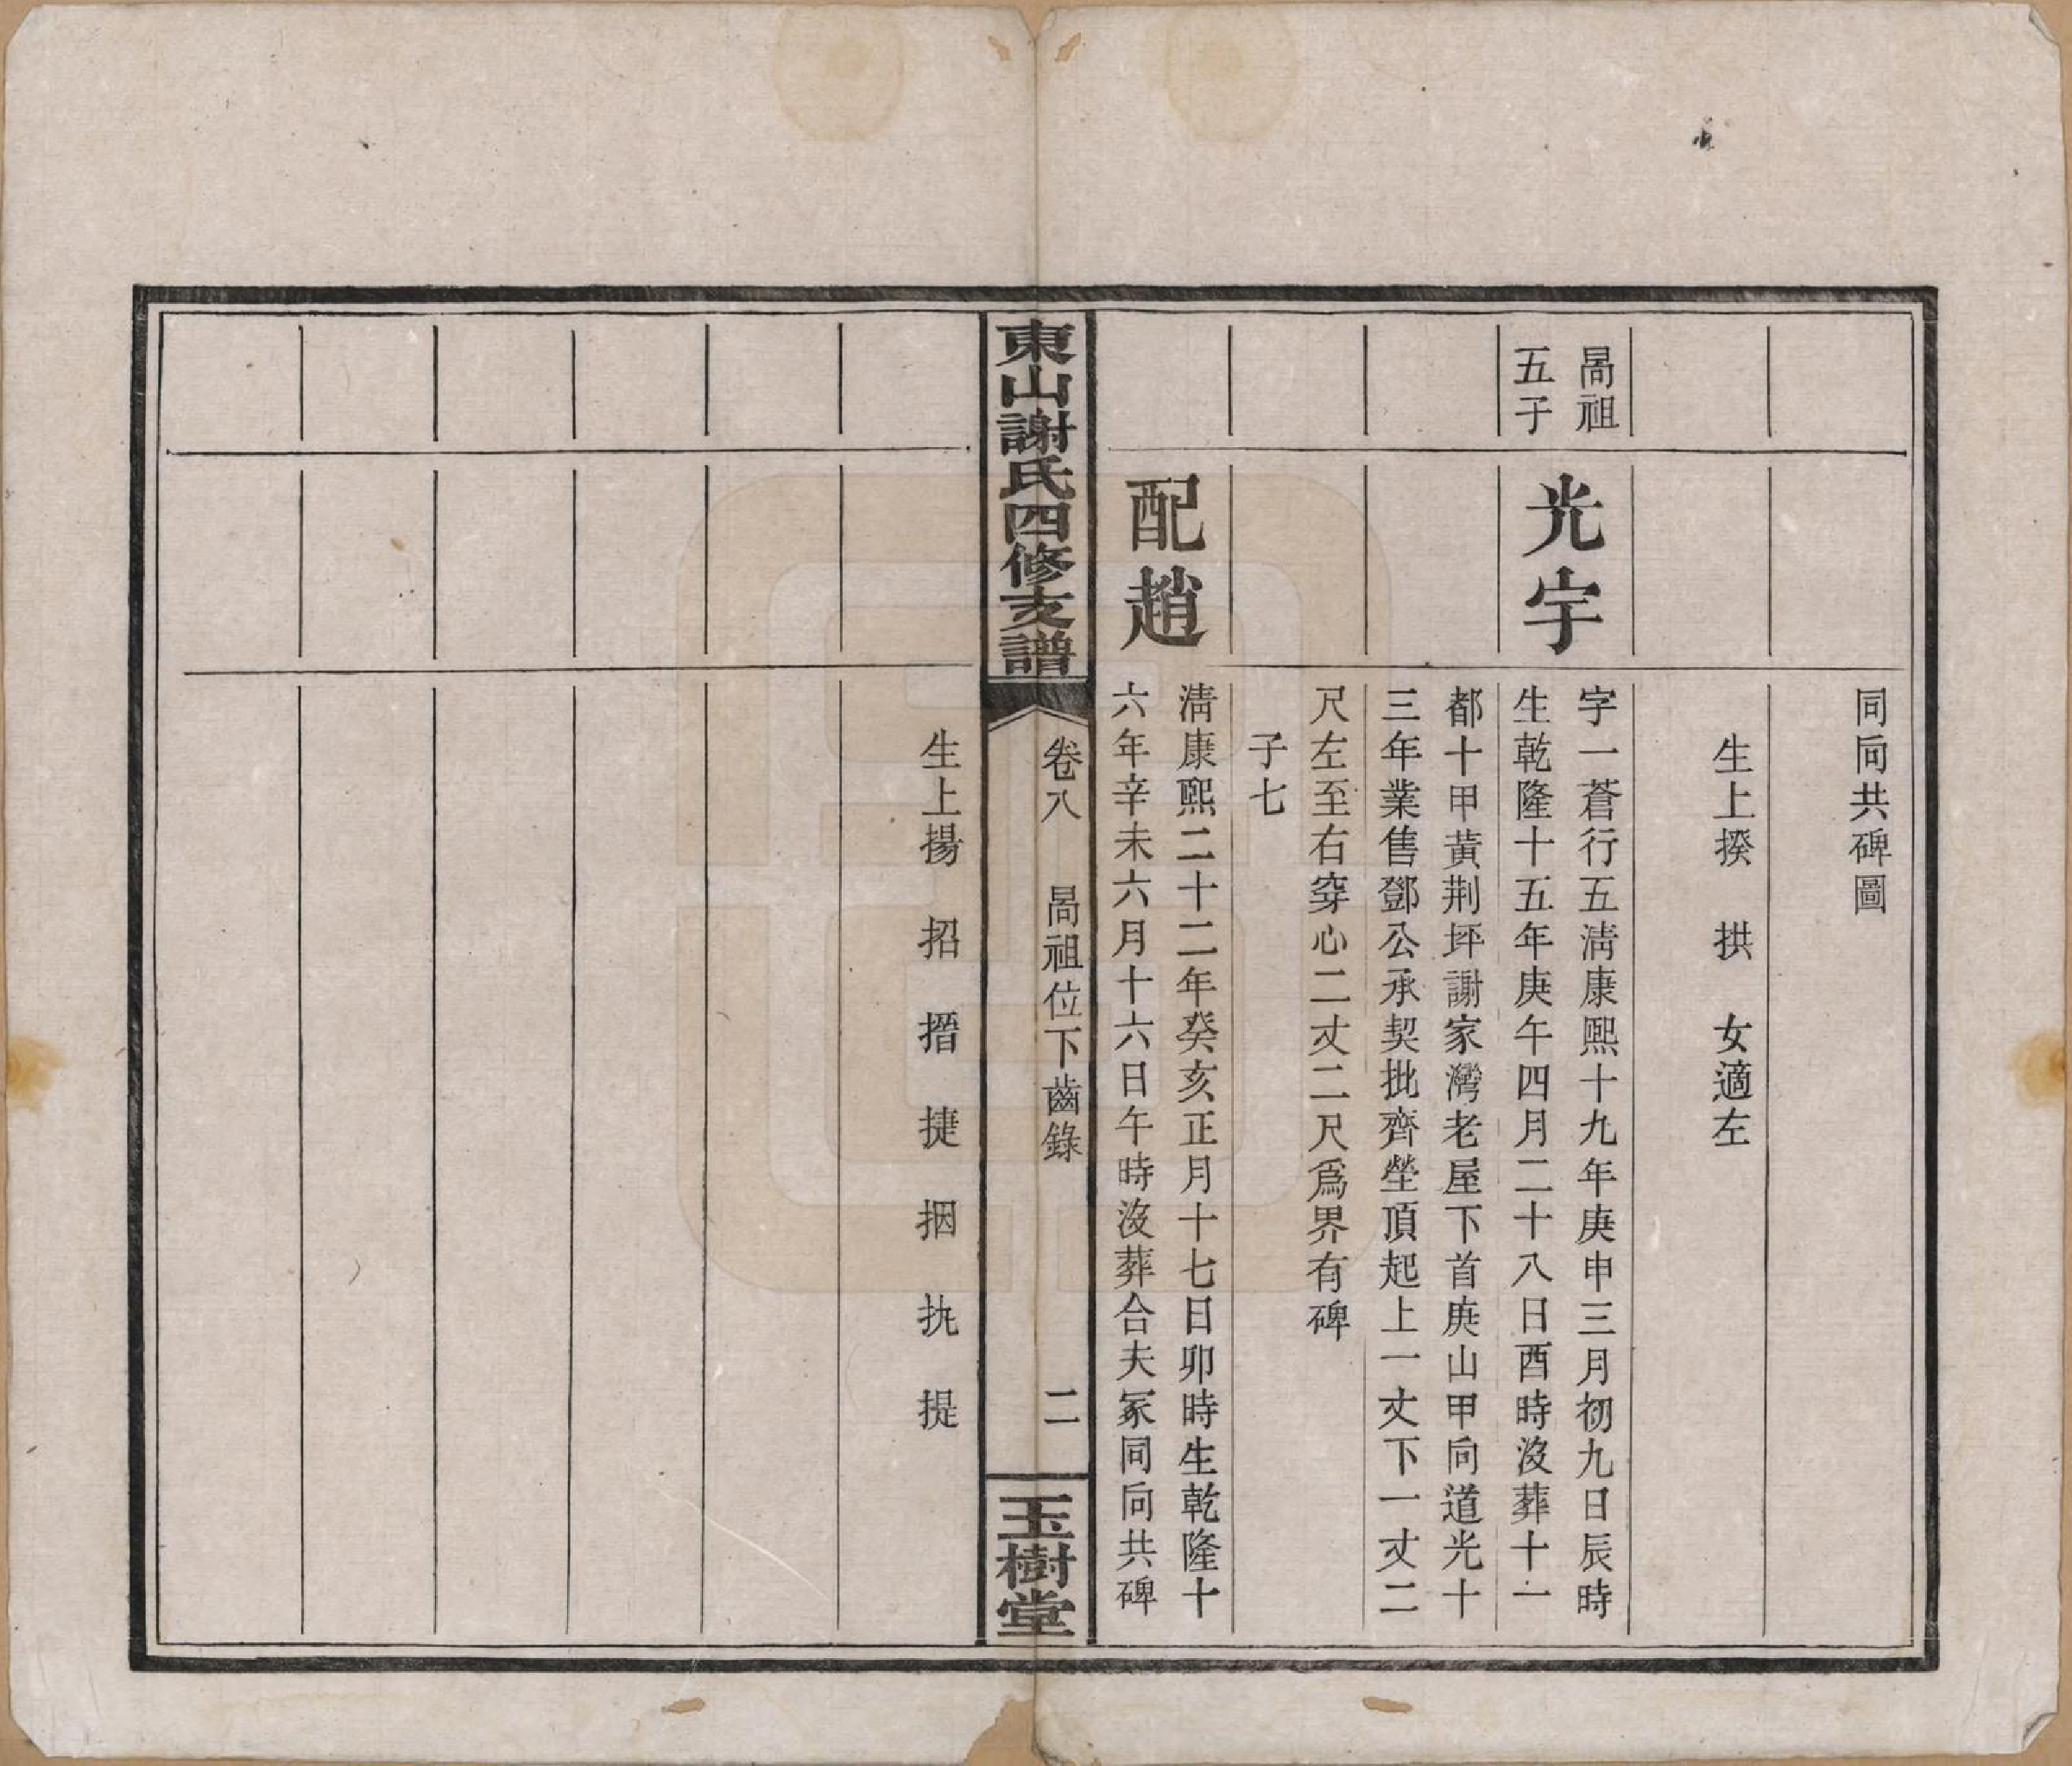 同向共碑圖
生上揆 拱 女適左
咼祖
五子
光宇
字一蒼行五淸康熙十九年庚申三月初九日辰時
生乾隆十五年庚午四月二十八日酉時沒葬十一
都十甲黃荆坪謝家灣老屋下首庚山甲向道光十
三年業售鄧公承契批齊塋頂起上一丈下一丈二
尺左至右穿心二丈二尺爲界有碑
子七
配趙
淸康熙二十二年癸亥正月十七日卯時生乾隆十
六年辛未六月十六日午時沒葬合夫冢同向共碑
東山謝氏四修支譜
卷八 咼祖位下齒錄 二
玉樹堂
生上揚 招 搢 捷 捆 㧑 提